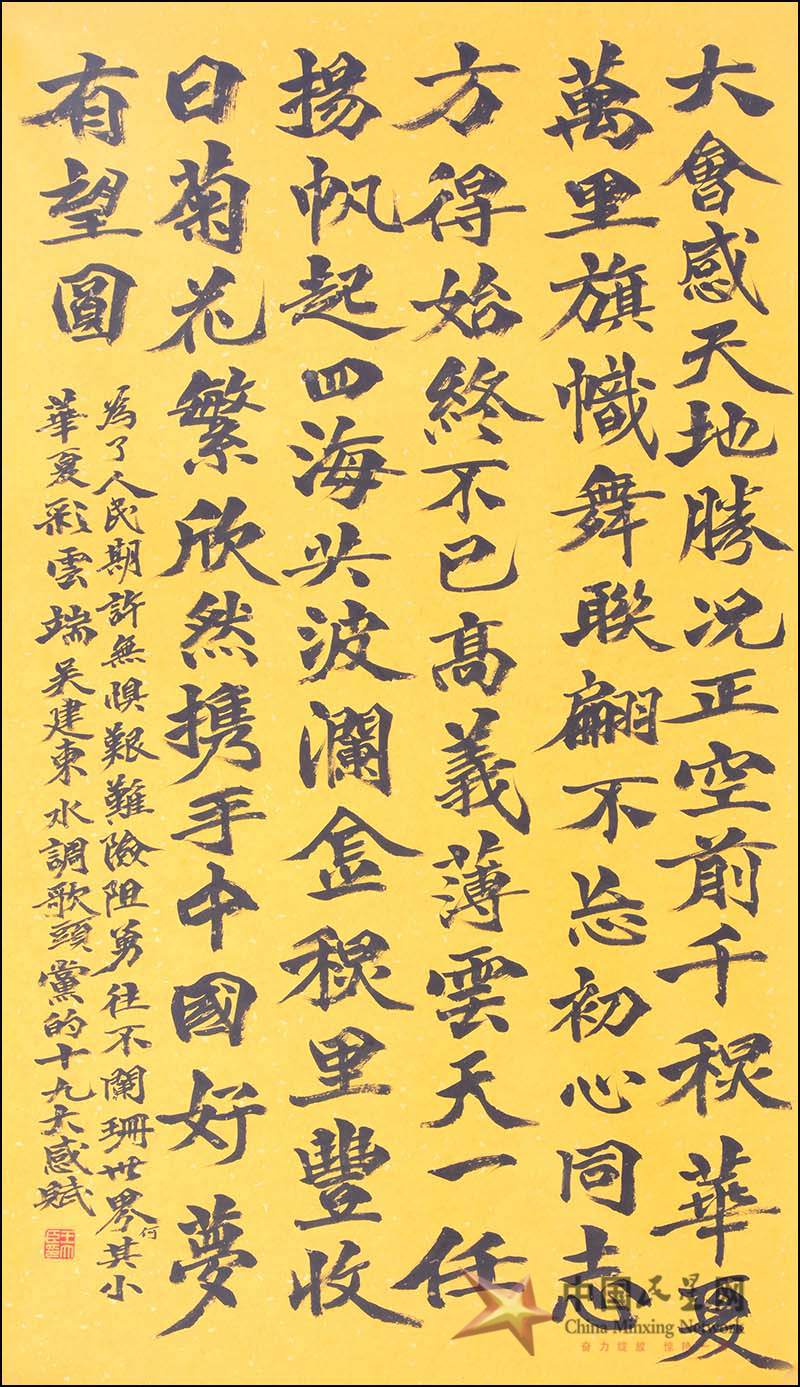 大會感天地勝况正空前千秋華夏
萬里旗幟舞聯翩不忘初心同志
方得始終不已高義薄雲天一任
揚帆起四海共波瀾金秋里豐收
日菊花繁欣然携手中國好夢
有望圓
為了人民期許無惧艱難險阻勇往不闌珊世界何其小
華夏彩雲端吴建東水調歌頭黨的十九大感賦
中国民星网
China Minxing Network
奋力绽放